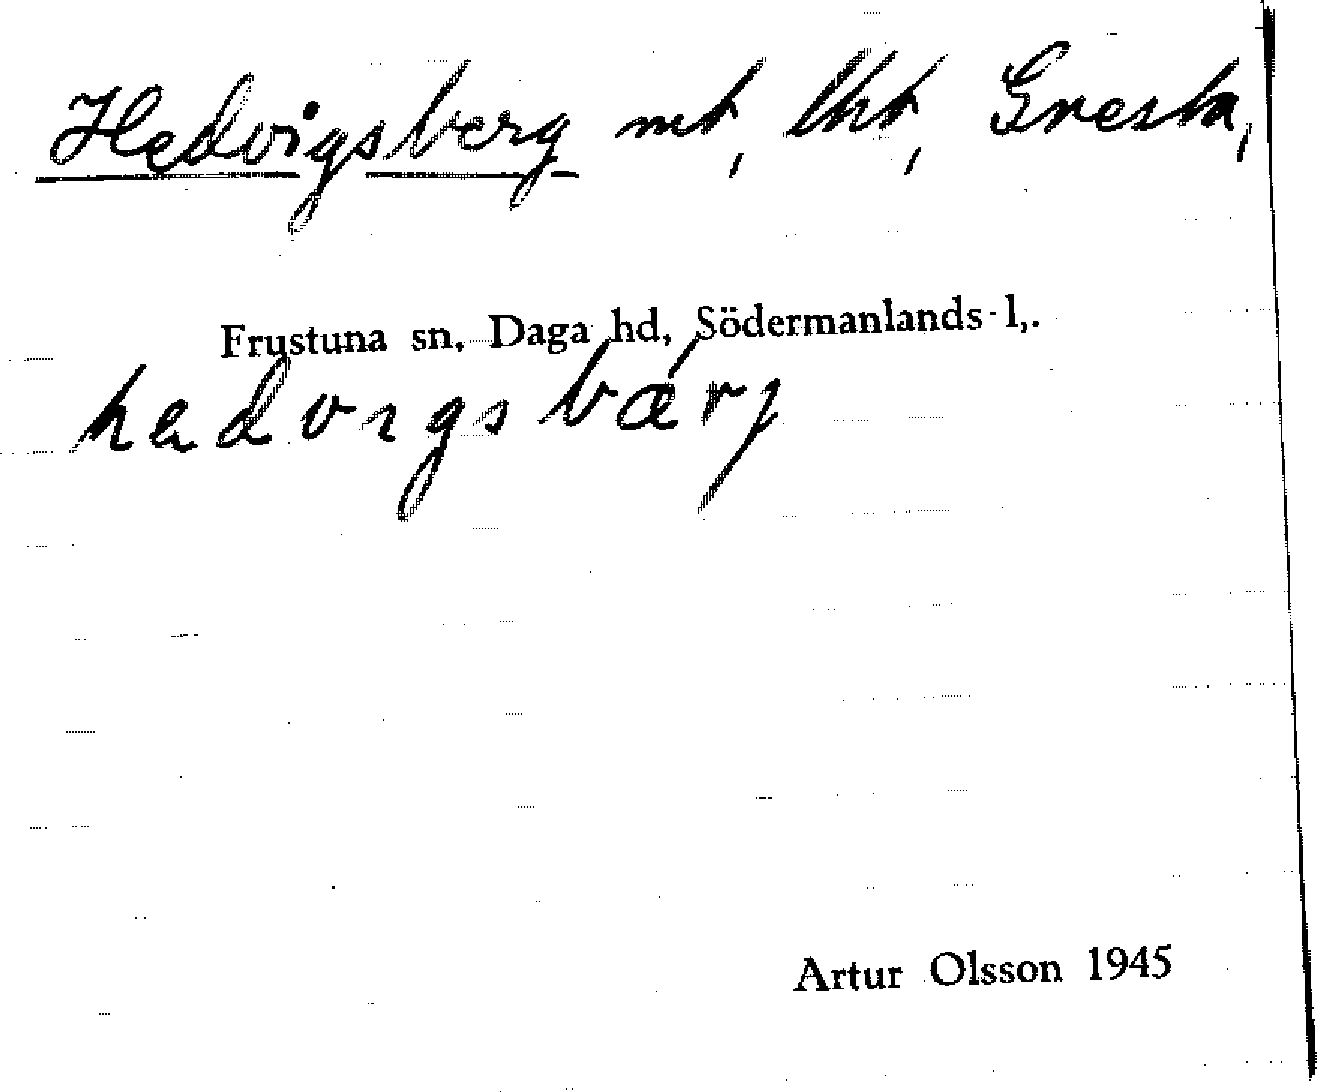 Hedvigsberg mt, lht, Gnesta,
Frustuna sn, Daga hd, Södermanlands l,.
hedvigsbærj
Artur Olsson 1945